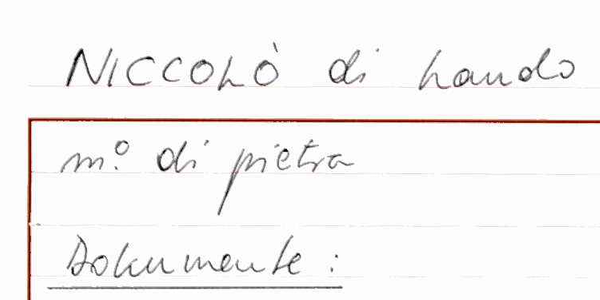 NICCOLÒ di Lando
m.º di pietra
Dokumente :